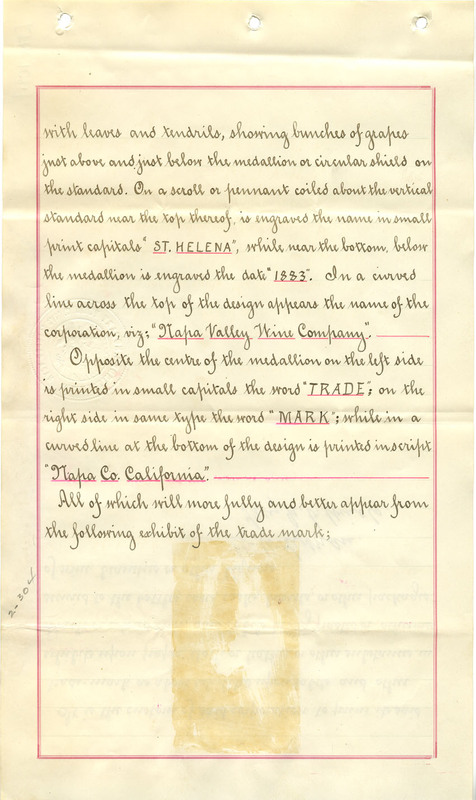 with leaves and tendrils, showing bunches of grapes
just above and just below the medallion or circular shield on
the standard. On a scroll or pennant coiled about the vertical
standard near the top thereof, is engraved the name in small
print capitals "ST. HELENA", while near the bottom, below
the medallion is engraved the date "1883". In a curved
line across the top of the design appears the name of the
corporation, viz; "Napa Valley Wine Company".
Opposite the centre of the medallion on the left side
is printed in small capitals the word "TRADE"; on the
right side in same type the word "MARK"; while in a
curved line at the bottom of the design is printed in script
"Napa Co. California".
All of which will more fully and better appear from
the following exhibit of the trade mark;